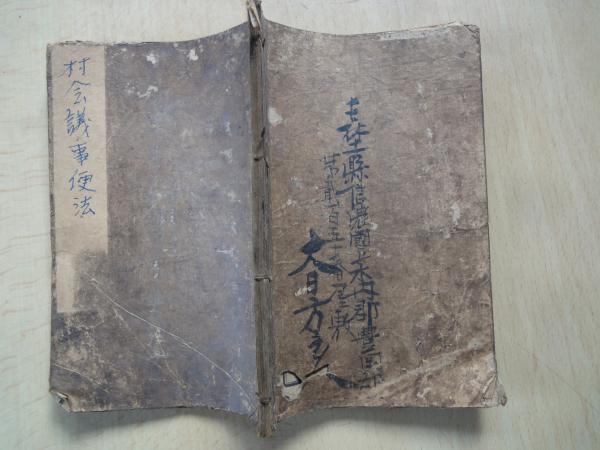 村会議事便法
長埜縣信濃國上水内郡豊岡
第貳百五十番屋敷
大日方